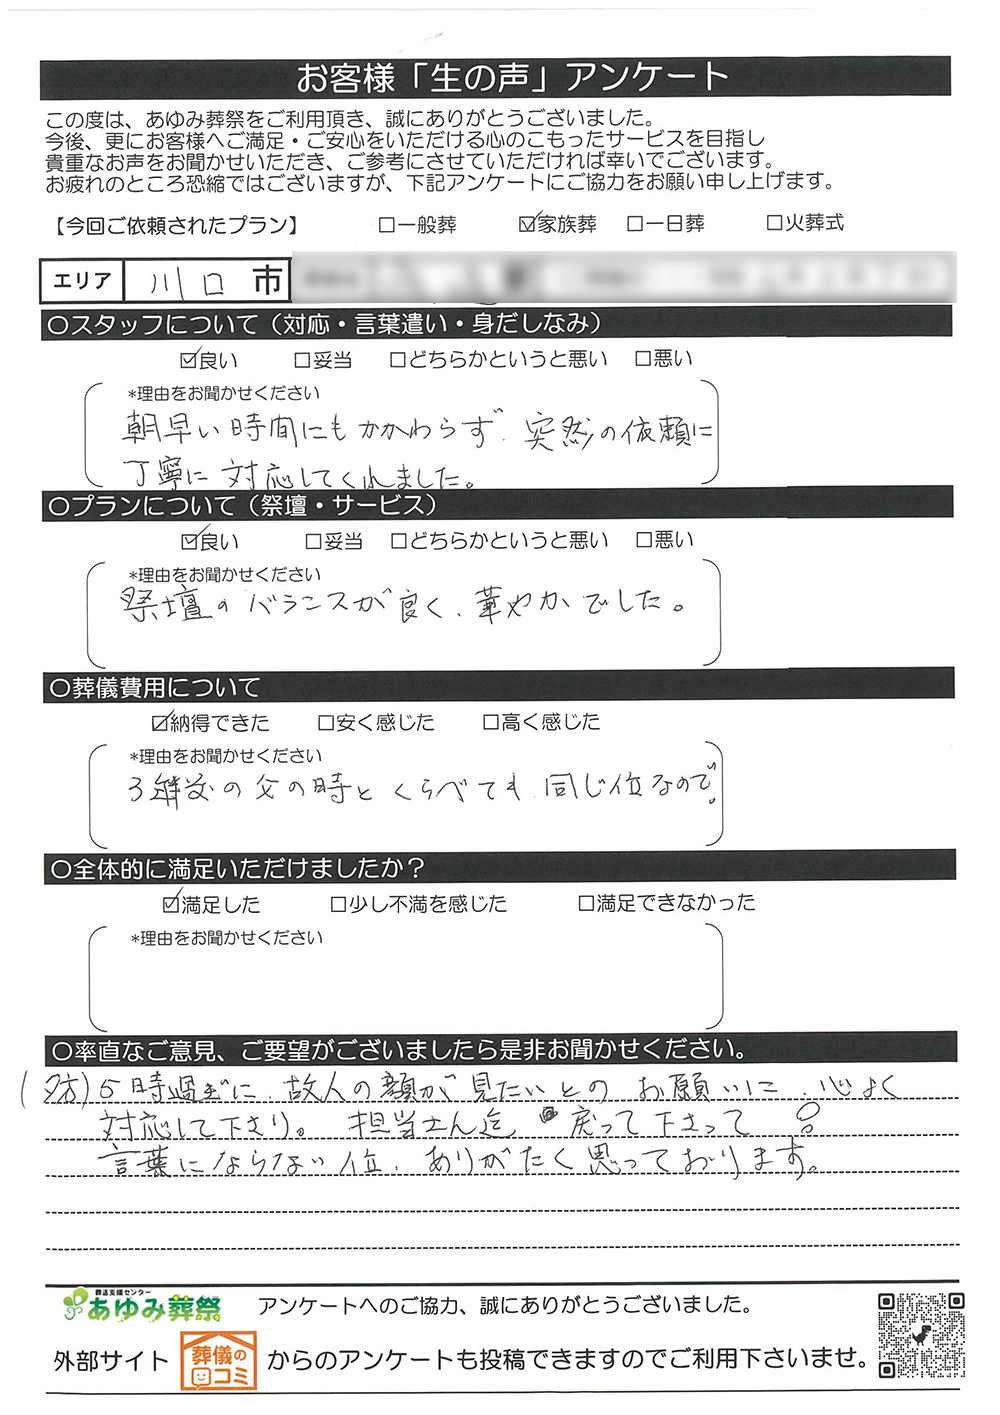 お客様「生の声」アンケート
この度は、あゆみ葬祭をご利用頂き、誠にありがとうございました。
今後、更にお客様へご満足・ご安心をいただける心のこもったサービスを目指し
貴重なお声をお聞かせいただき、ご参考にさせていただければ幸いでございます。
お疲れのところ恐縮ではございますが、下記アンケートにご協力をお願い申し上げます。
【今回ご依頼されたプラン】 □一般葬 ☑家族葬 □一日葬 □火葬式
エリア 川口 市
○スタッフについて（対応・言葉遣い・身だしなみ）
☑良い □妥当 □どちらかというと悪い □悪い
*理由をお聞かせください
朝早い時間にもかかわらず、突然の依頼に
丁寧に対応してくれました。
○プランについて（祭壇・サービス）
☑良い □妥当 □どちらかというと悪い □悪い
*理由をお聞かせください
祭壇のバランスが良く、華やかでした。
○葬儀費用について
☑納得できた □安く感じた □高く感じた
*理由をお聞かせください
3年前の父の時とくらべても、同じ位なので。
○全体的に満足いただけましたか？
☑満足した □少し不満を感じた □満足できなかった
*理由をお聞かせください
○率直なご意見、ご要望がございましたら是非お聞かせください。
(夕方)5時過ぎに、故人の顔が見たいとのお願いに、心よく
対応して下さり。担当さん迄 戻って下さって
言葉にならない位、ありがたく思っております。
葬送支援センター
あゆみ葬祭 アンケートへのご協力、誠にありがとうございました。
外部サイト 葬儀の口コミ からのアンケートも投稿できますのでご利用下さいませ。